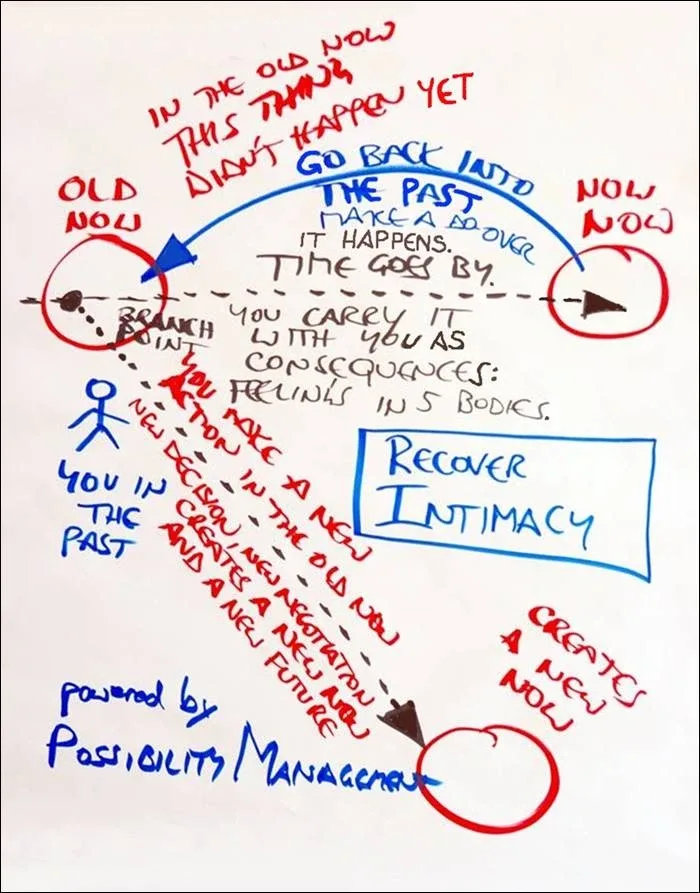 IN THE OLD NOW
THIS THING
DIDN'T HAPPEN YET
OLD
NOW
GO BACK INTO
THE PAST
MAKE A DO-OVER
NOW
NOW
IT HAPPENS.
TIME GOES BY.
BRANCH
POINT
YOU CARRY IT
WITH YOU AS
CONSEQUENCES:
FEELINGS IN 5 BODIES.
YOU MAKE A NEW
ACTION IN THE OLD NOW
NEW DECISION, NEW NEGOTIATION
CREATES A NEW NOW
AND A NEW FUTURE
YOU IN
THE
PAST
RECOVER
INTIMACY
CREATES
A NEW
NOW
powered by
POSSIBILITY MANAGEMENT